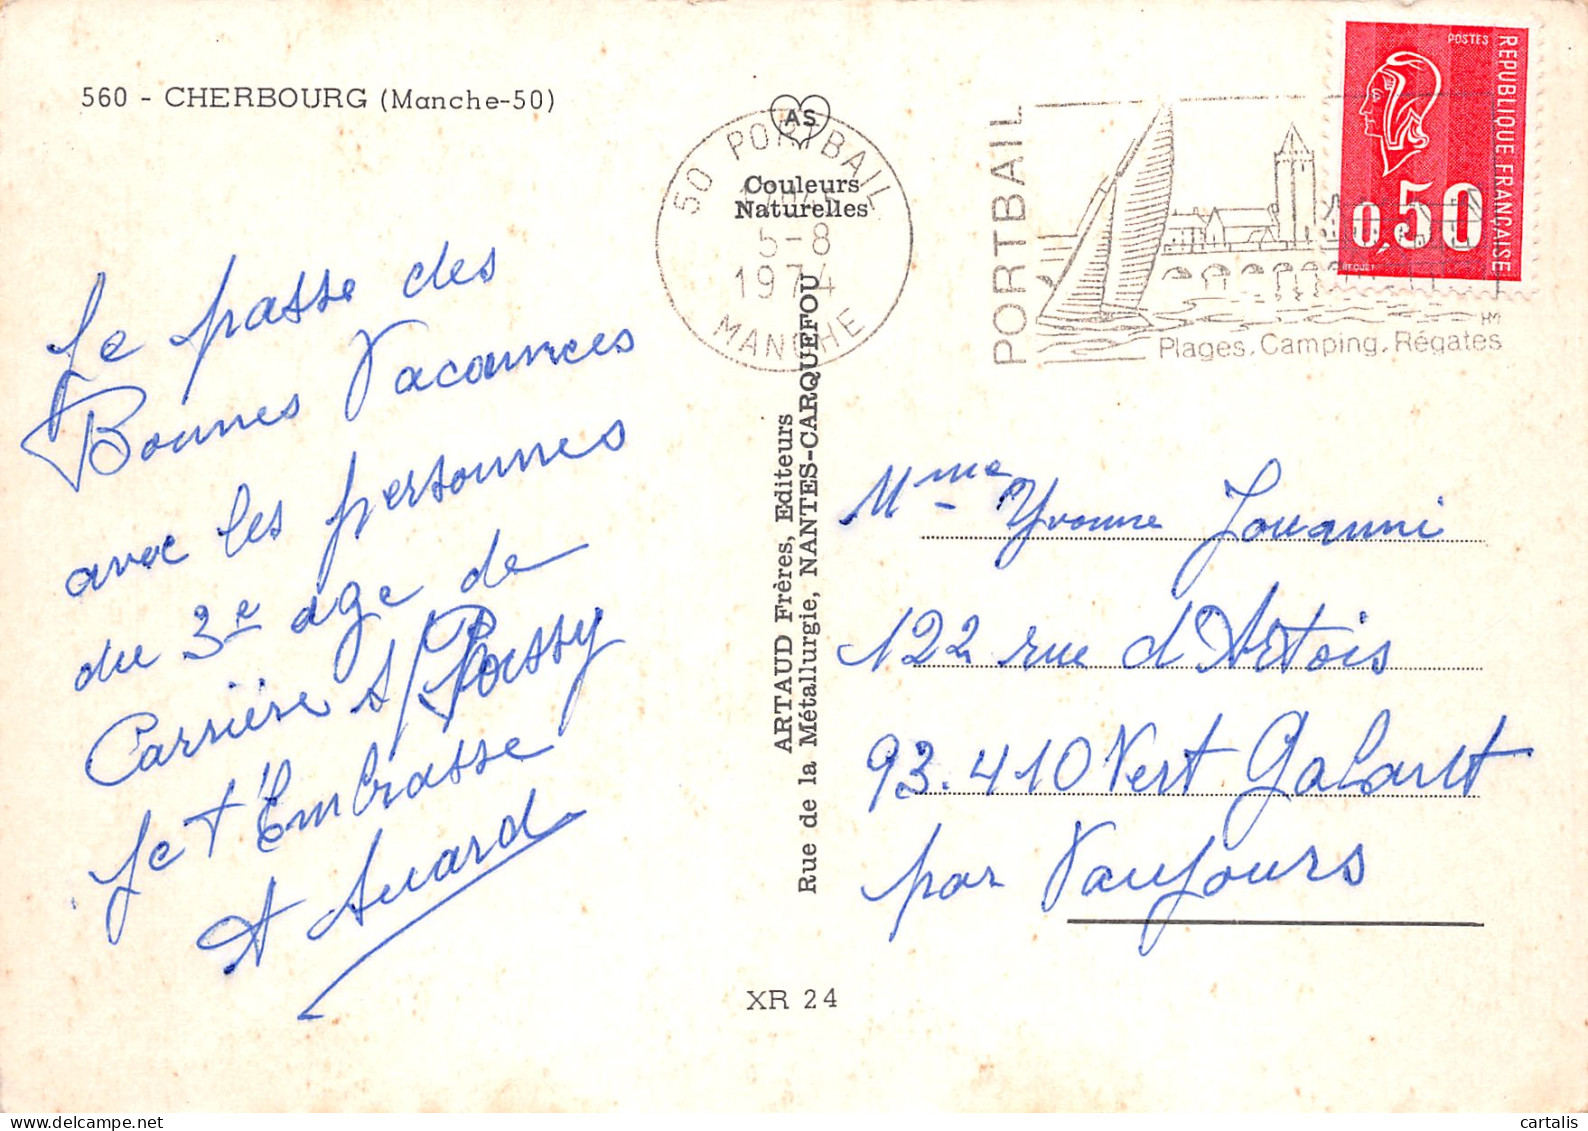 560 - CHERBOURG (Manche-50)
Je passe des
Bonnes Vacannces
avec les personnes
du 3e age de
Carrière s/ Poissy
Je t'Embrasse
A Suard
AS
Couleurs
Naturelles
50 PORTBAIL
5-8
1974
MANCHE
ARTAUD Frères, Editeurs
Rue de la Métallurgie, NANTES-CARQUEFOU
XR 24
PORTBAIL
Plages, Camping, Régates
HM
POSTES
REPUBLIQUE FRANÇAISE
0,50
BEQUET
Mme Yvonne Jouanni
122 rue d'Artois
93.410 Vert Galant
par Vaujours
cartalis